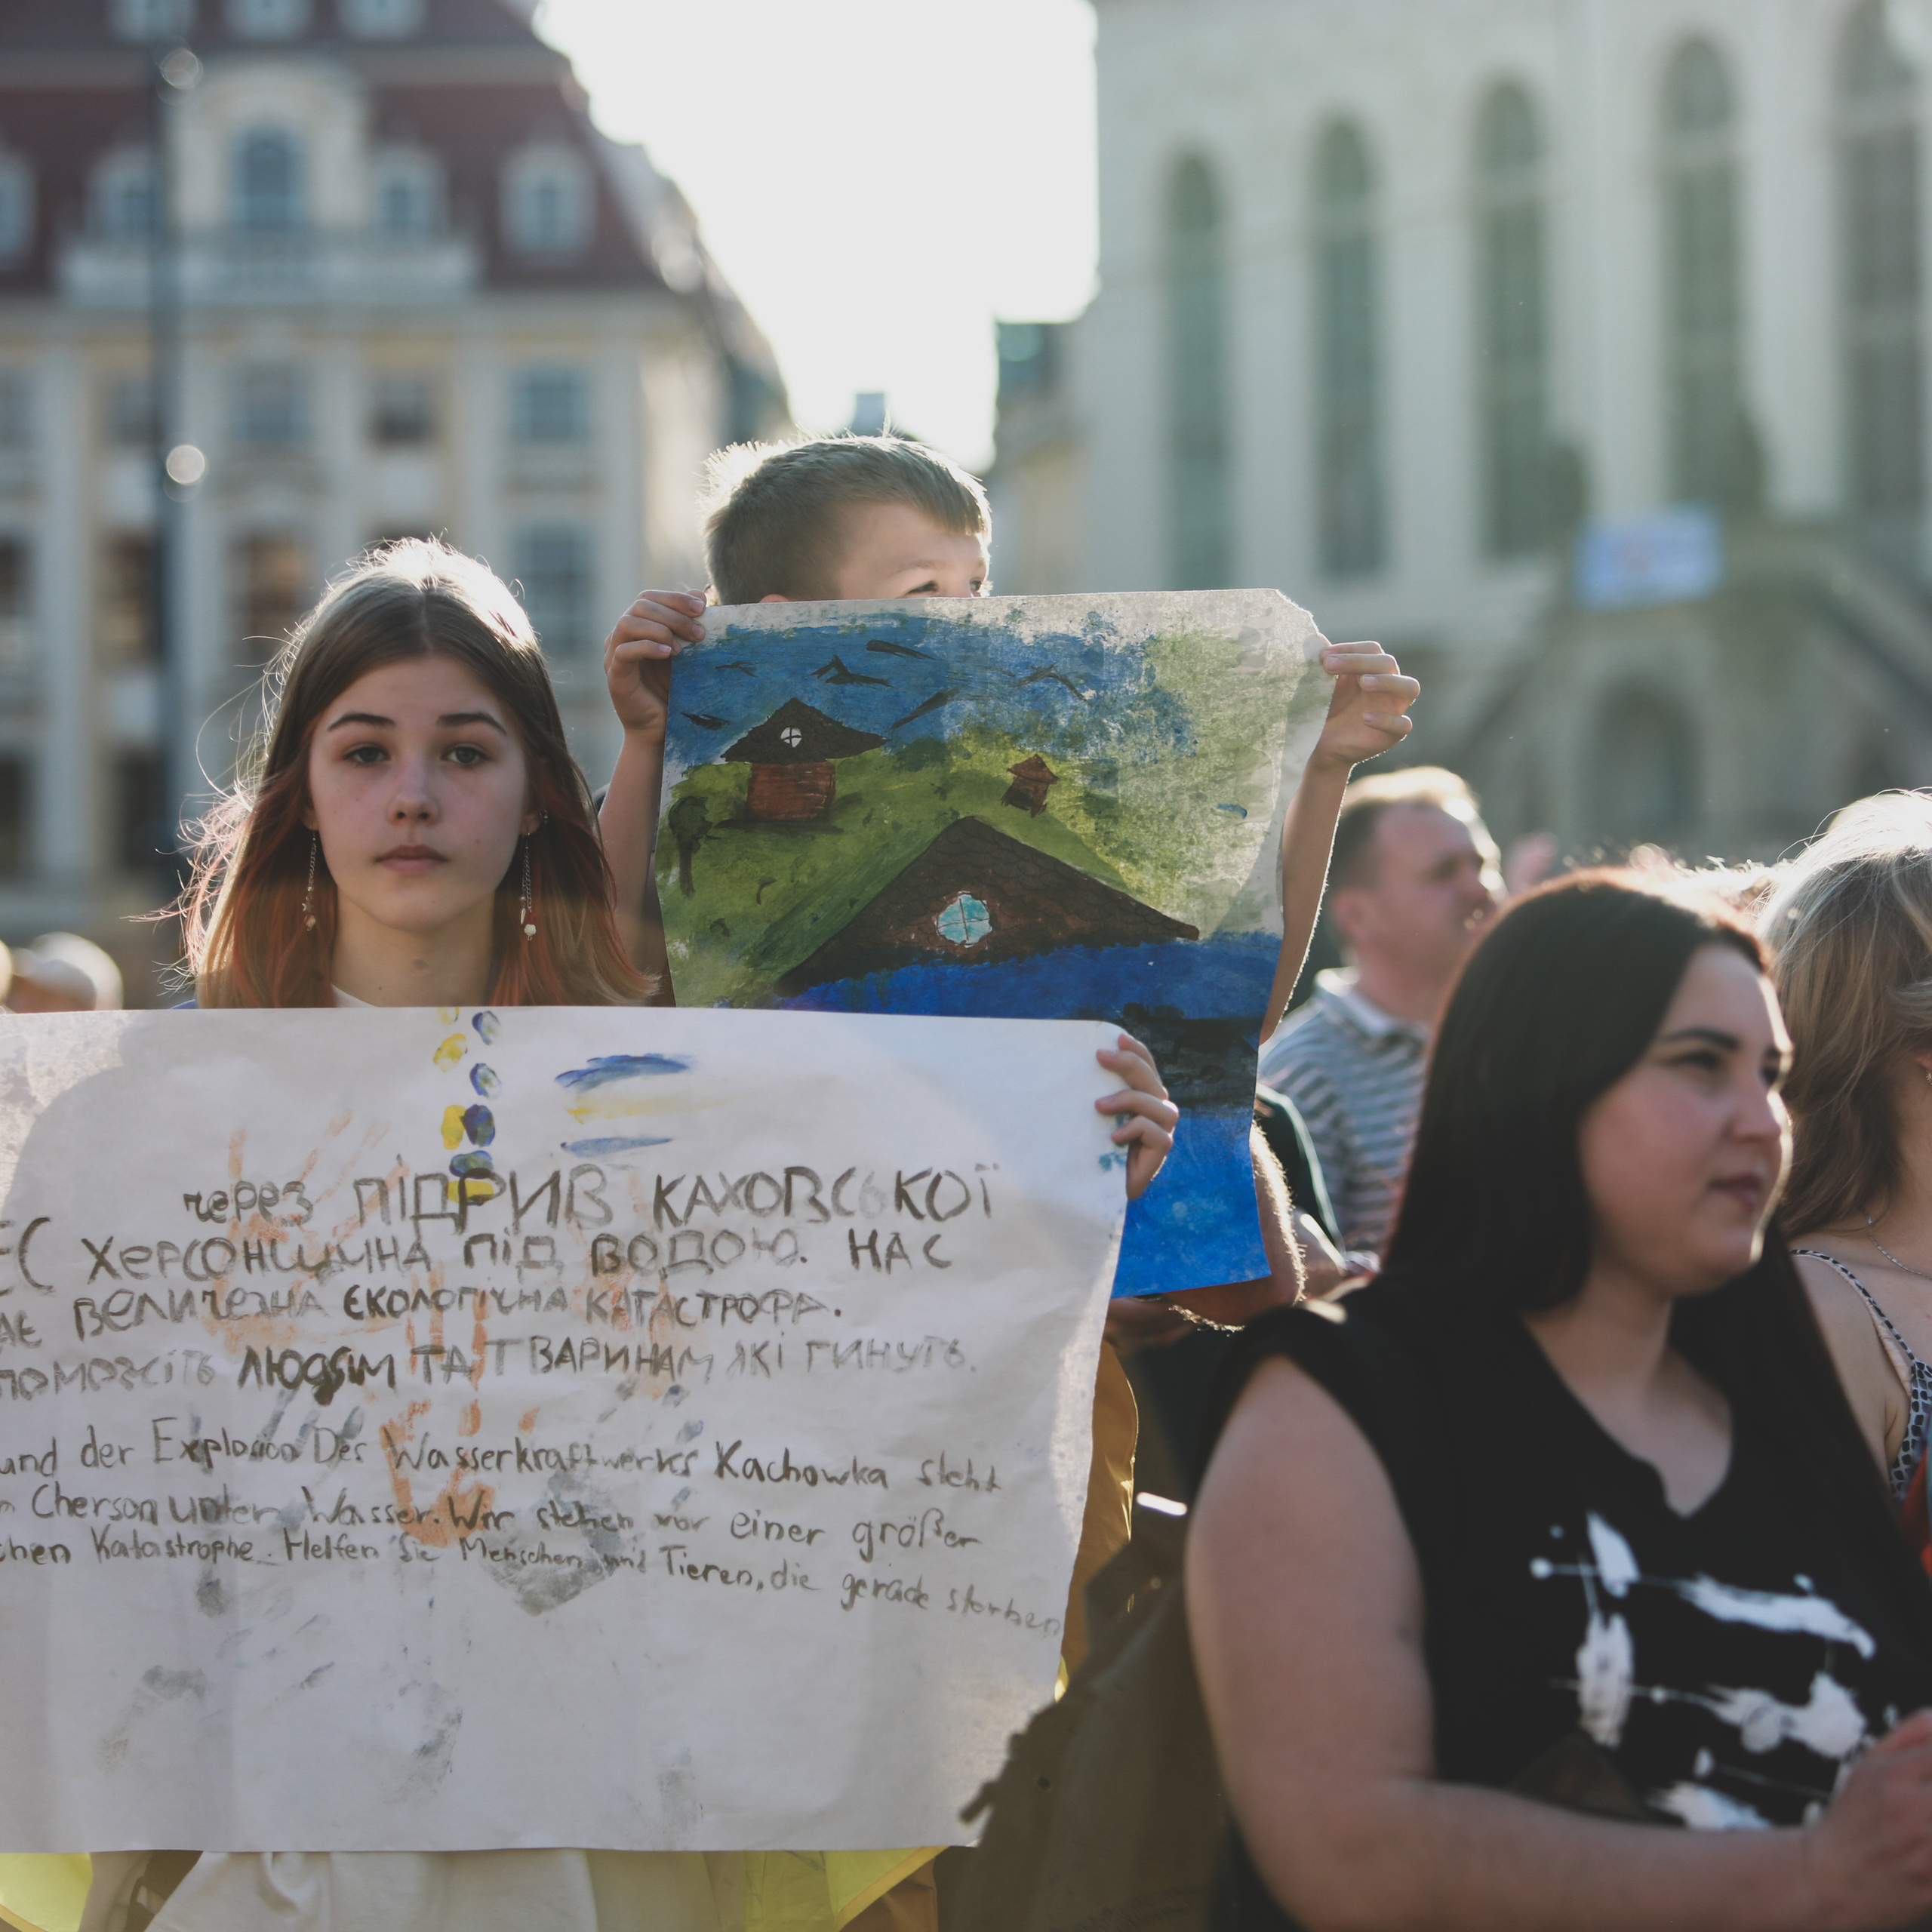 через ПІДРИВ КАХОВСЬКОЇ
ЕС ХЕРСОНЩИНА ПІД ВОДОЮ. НАС
АЄ ВЕЛИЧЕЗНА ЄКОЛОГІЧНА КАТАСТРОФА.
ПОМОЖІТЬ ЛЮДЯМ ТА ТВАРИНАМ ЯКІ ГИНУТЬ.
und der Explosion Des Wasserkraftwerks Kachowka steht
n Cherson unter Wasser. Wir stehen vor einer größer
chen Katastrophe. Helfen Sie Menschen und Tieren, die gerade sterben